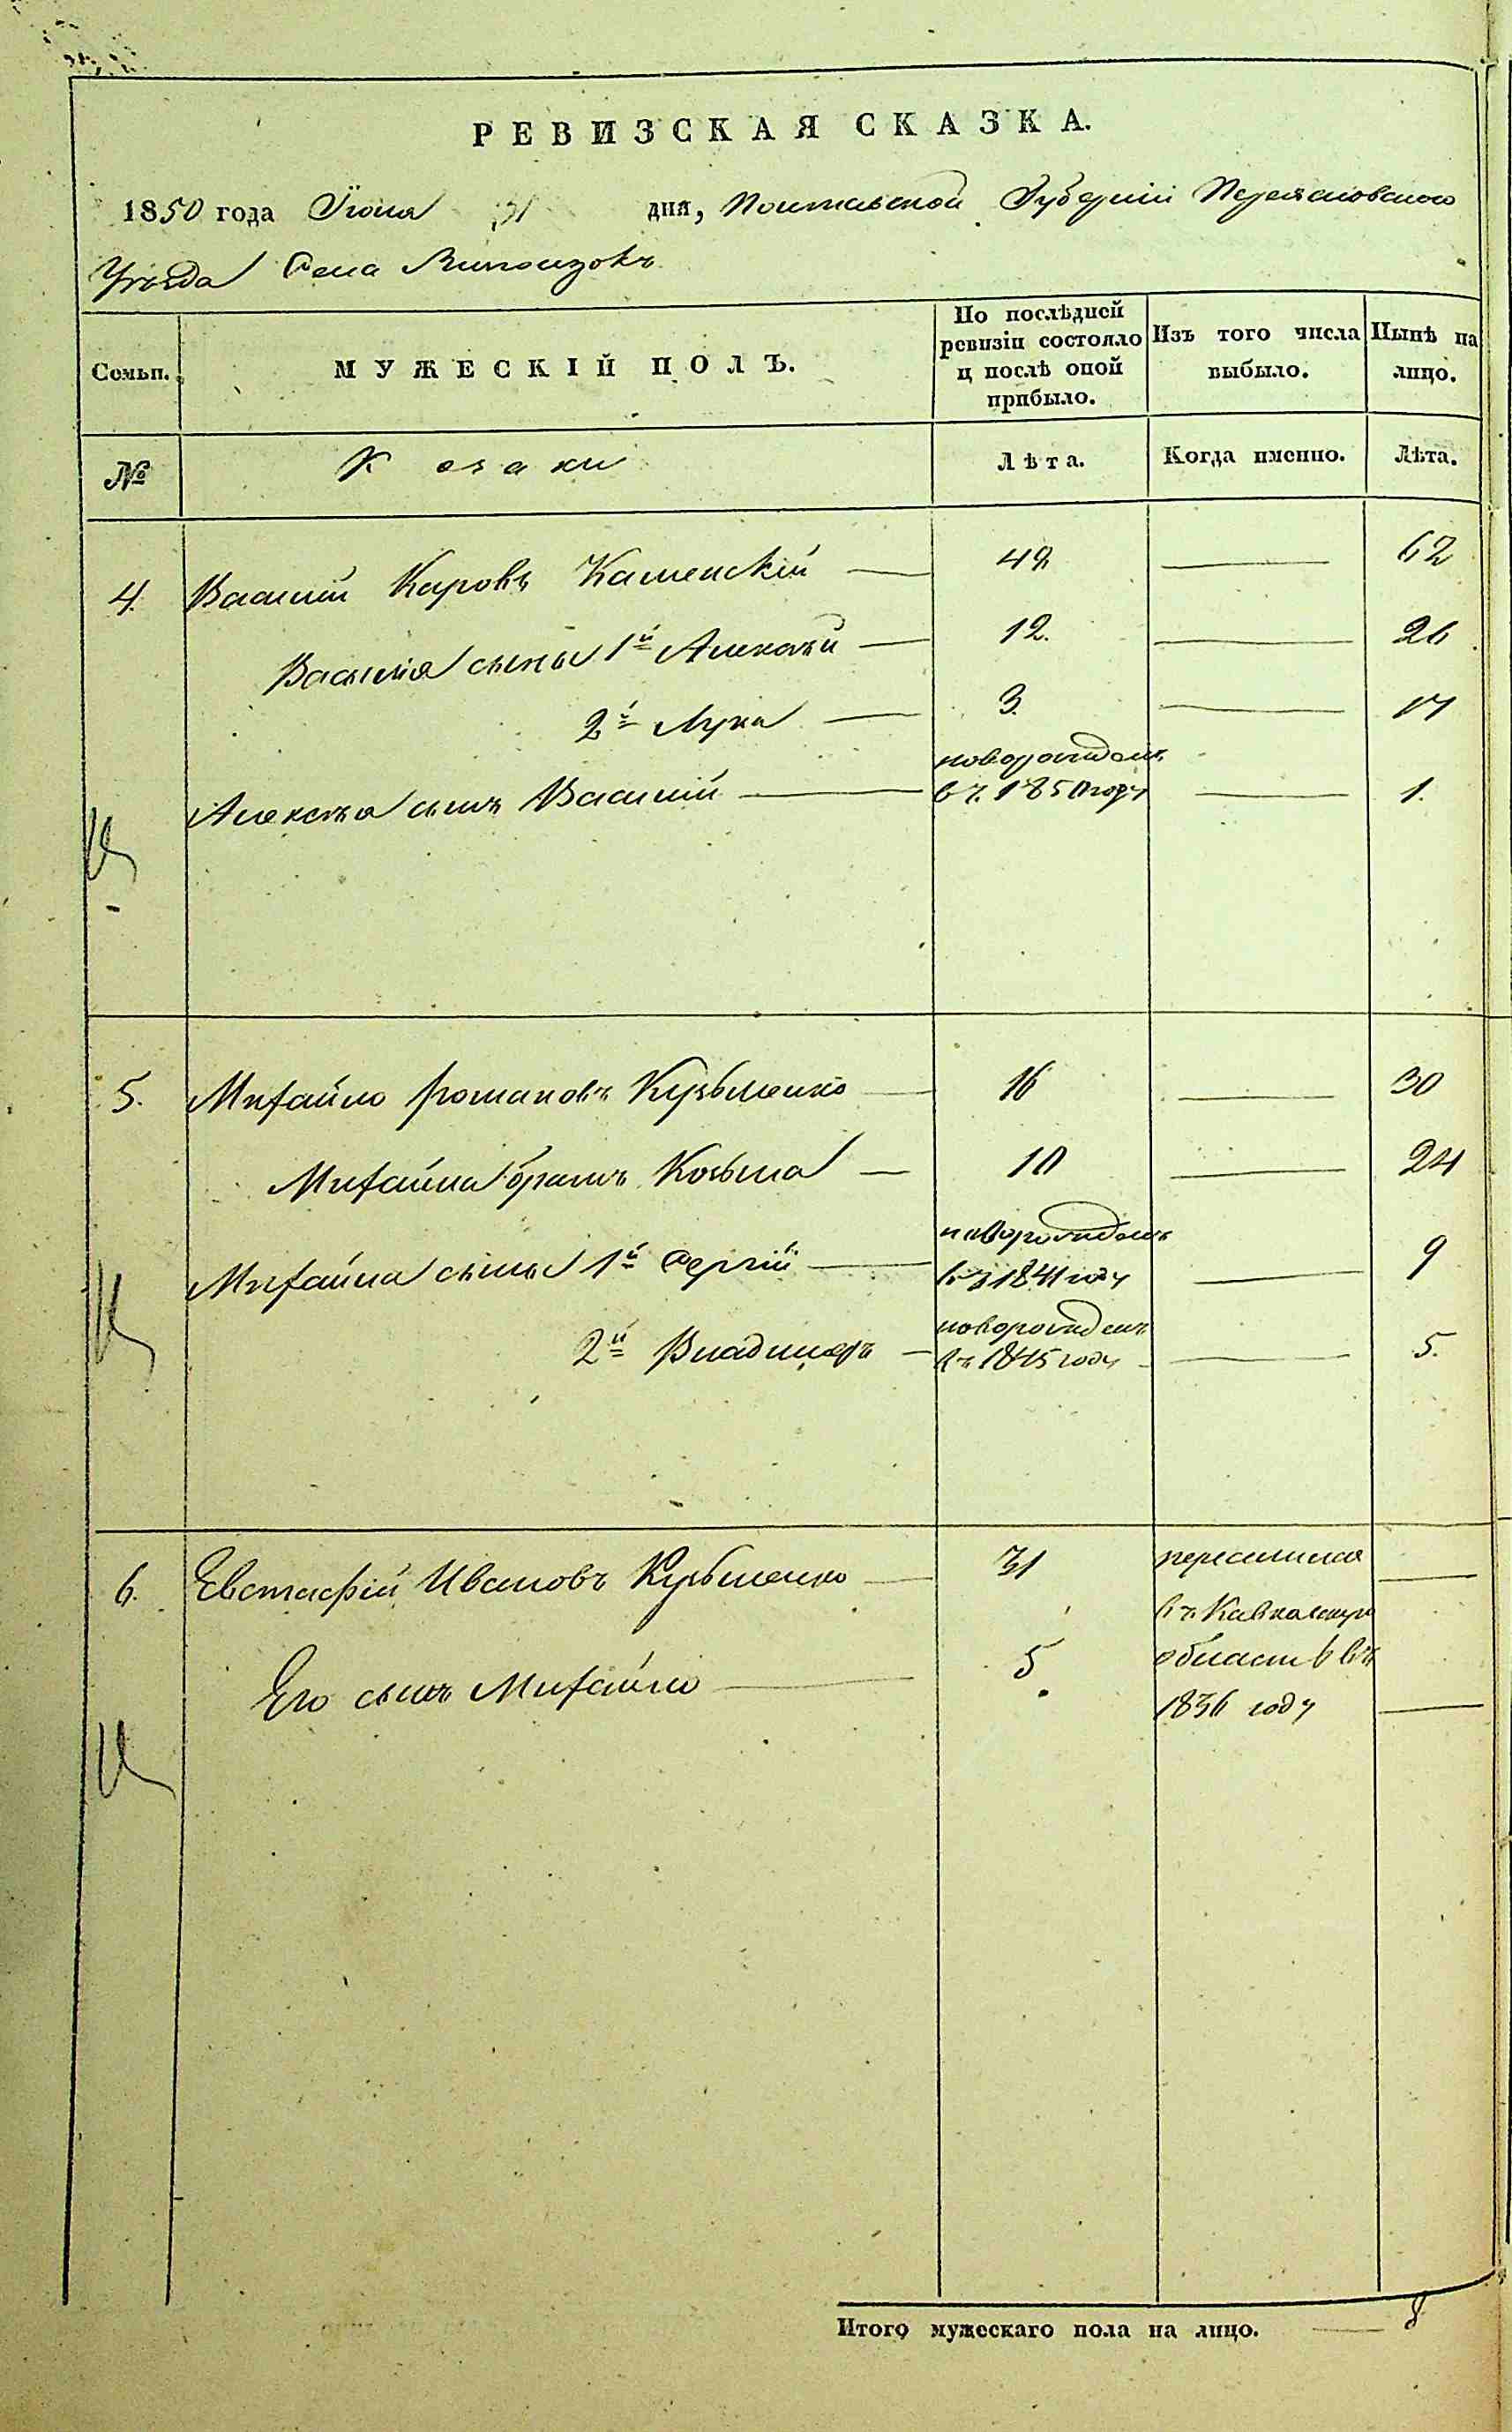 РЕВИЗСКАЯ СКАЗКА.
1850 года Іюня 31 дня, Полтавской Губерніи Переясловского
Уѣзда Села
Семьи. МУЖЕСКІЙ ПОЛЪ. По послѣдней ревизіи состояло и послѣ оной прибыло. Изъ того числа выбыло. Нынѣ на лицо.
№ Козаки Лѣта. Когда именно. Лѣта.
4. Василий Каровъ Каменскій — 48 — 62
Василія сыны 1й Алексѣй — 12. — 26
2й Лука — 3. — 17
новорожденъ
Алексѣя сынъ Василій — въ 1850 году — 1.
5. Михайло Романовъ Кузьменко — 16 — 30
Михайла братъ Козьма — 10 — 24
новорожденъ
Михайла сыны 1й Сергій — въ 1841 году — 9
новорожденъ
2й Владимеръ — въ 1845 году — 5.
6. Евстафій Ивановъ Кузьменко — 31 переселился —
въ Кавказскую
Его сынъ Михайло — 5. область въ
1836 году —
Итого мужескаго пола на лицо. — 8